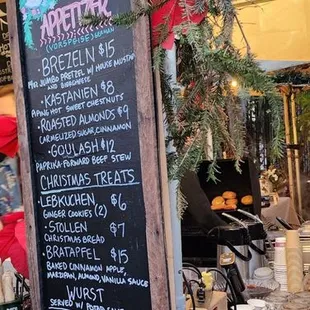 APPETIZER
(VORSPEISE) GERMAN
• BREZELN $15
JUMBO PRETZEL W/ HOUSE MUSTARD
AND BIERKÄSE
• KASTANIEN $8
PIPING HOT SWEET CHESTNUTS
• ROASTED ALMONDS $9
CARMELIZED SUGAR, CINNAMON
• GOULASH $12
PAPRIKA-FORWARD BEEF STEW
CHRISTMAS TREATS
• LEBKUCHEN $6
GINGER COOKIES (2)
• STOLLEN $7
CHRISTMAS BREAD
• BRATAPFEL $15
BAKED CINNAMON APPLE,
MARZIPAN, ALMOND, VANILLA SAUCE
WURST
SERVED W/